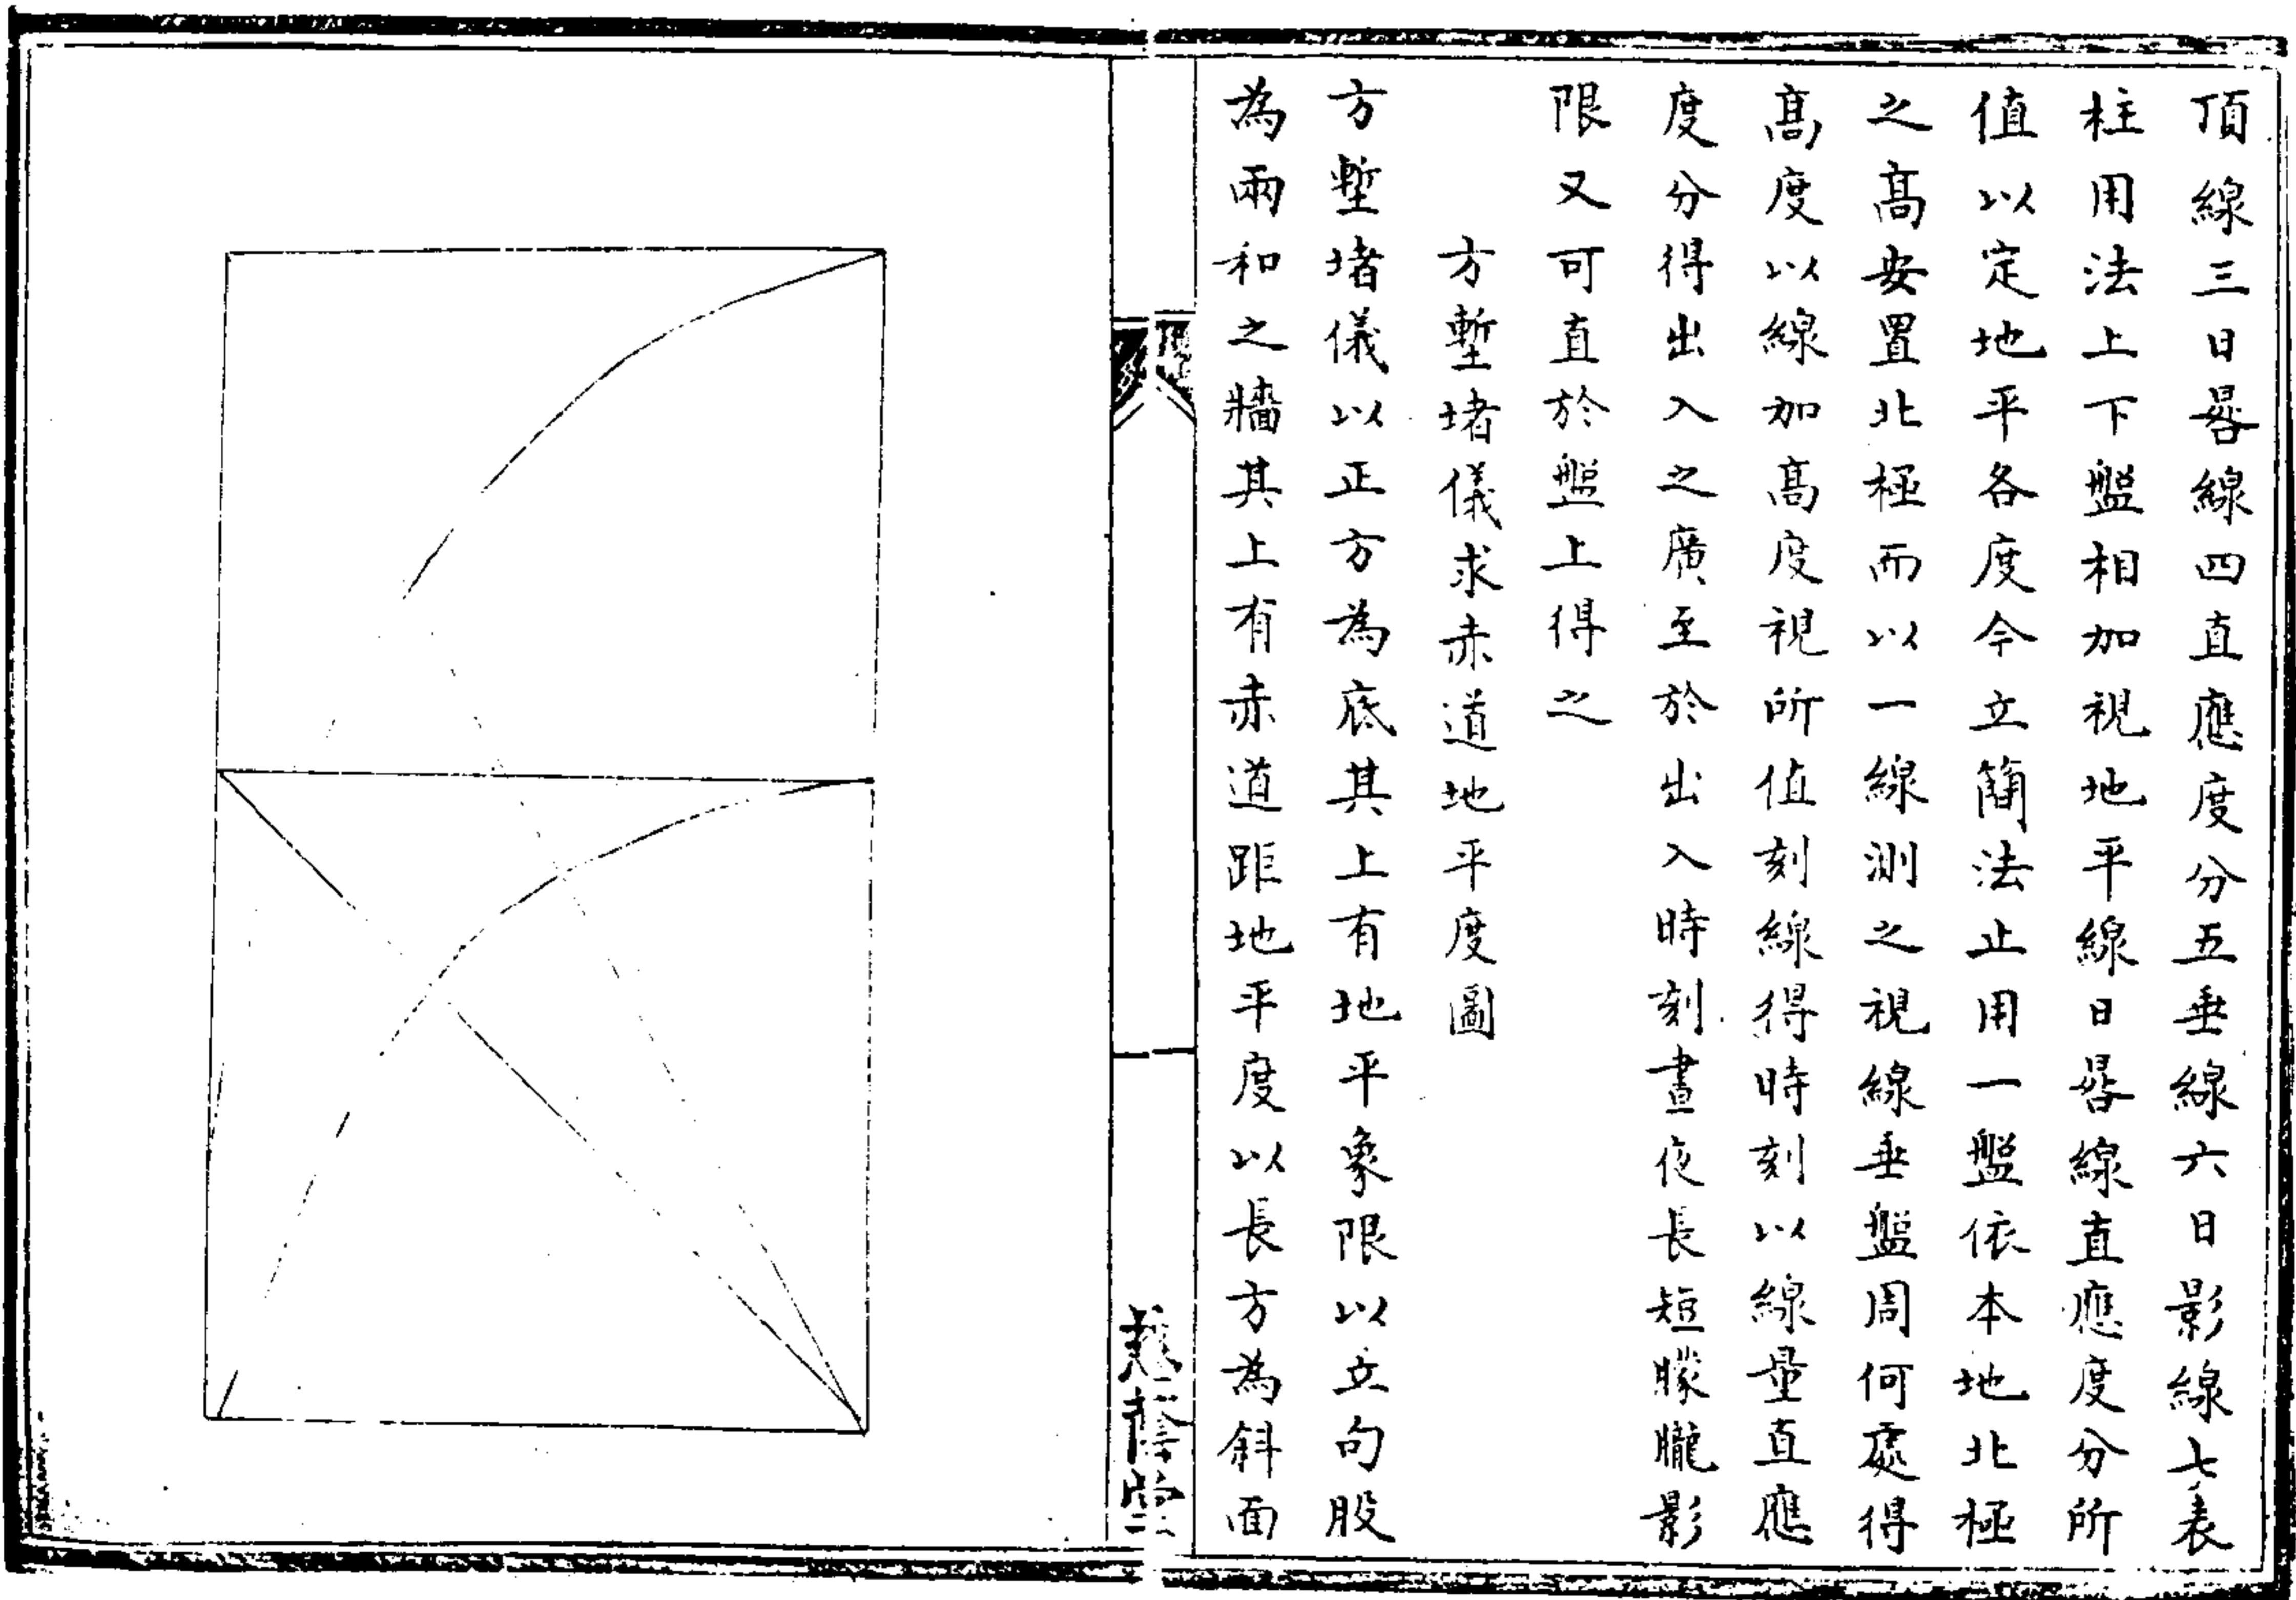 頂線三日晷線四直應度分五垂線六日影線七表
柱用法上下盤相加視地平線日晷線直應度分所
值以定地平各度今立簡法止用一盤依本地北極
之高安置北極而以一線測之視線垂盤周何處得
高度以線加高度視所值刻線得時刻以線量直應
度分得出入之廣至於出入時刻晝夜長短矇朧影
限又可直於盤上得之
方塹堵儀求赤道地平度圖
方塹堵儀以正方為底其上有地平象限以立句股
為兩和之牆其上有赤道距地平度以長方為斜面